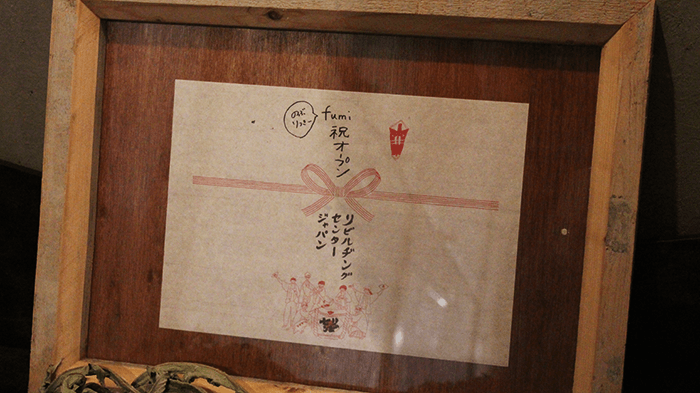 fumi
祝オープン
リビルディング
センター
ジャパン